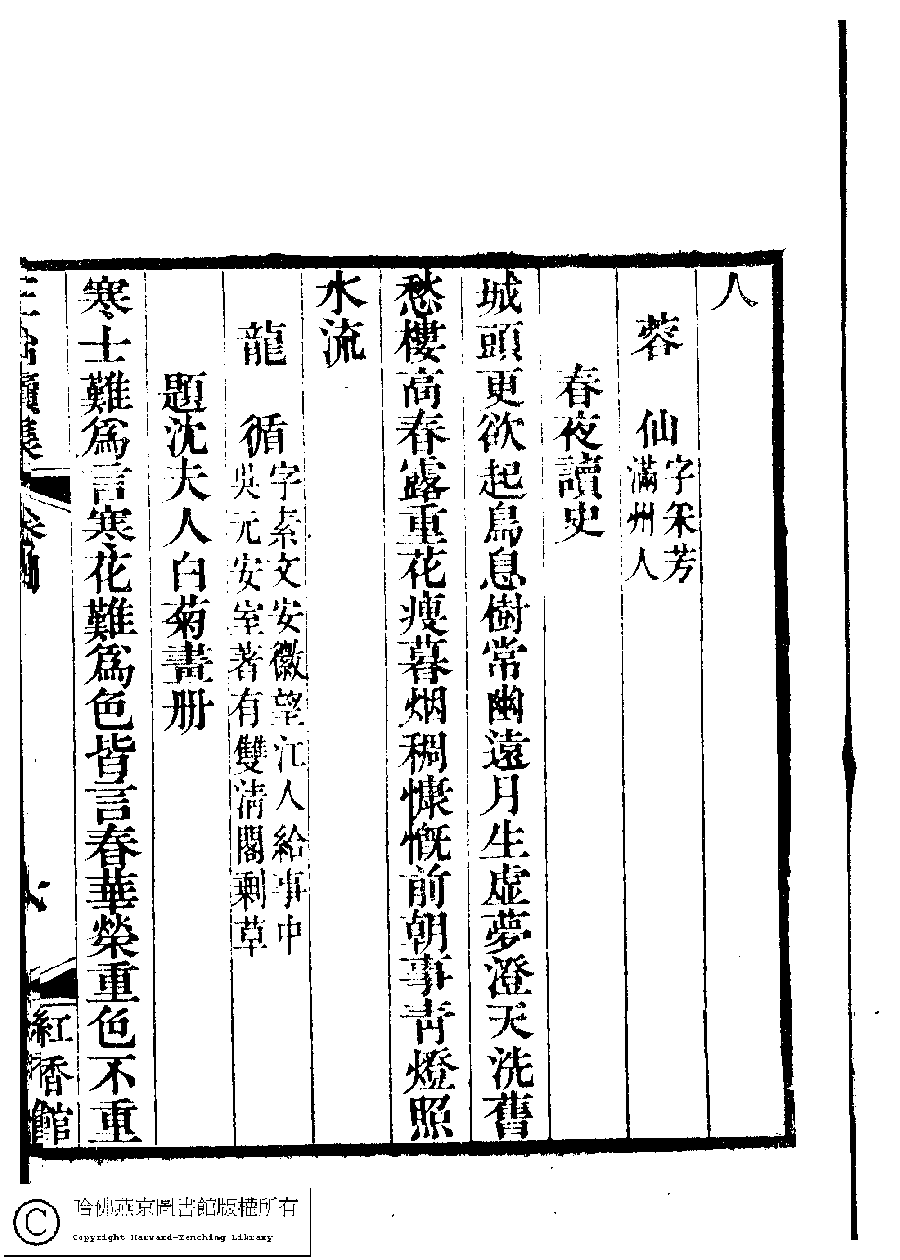 人
蓉仙 字釆芳 滿州人
春夜讀史
城頭更欲起鳥息樹常幽遠月生虛夢澄天洗舊
愁樓高春露重花瘦暮烟稠慷慨前朝事青燈照
水流
龍循 字素文安徽望江人給事中 吳元安室著有雙清閣剩草
題沈夫人白菊畫册
寒士難為言寒花難為色皆言春華榮重色不重
紅香館
哈佛燕京圖書館版權所有
Copyright Harvard-Yenching Library